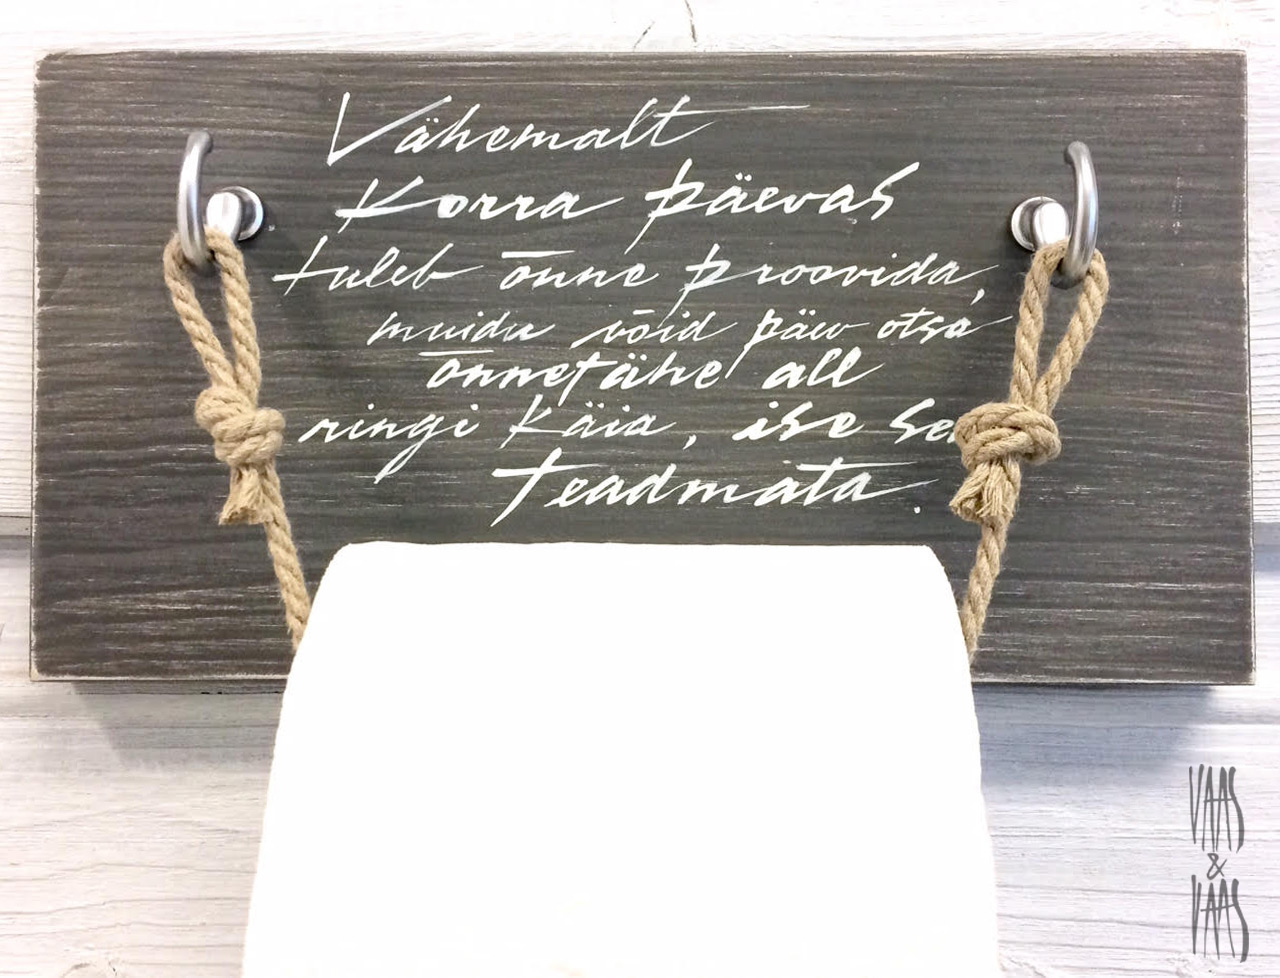 Vähemalt
korra päevas
tuleb õnne proovida,
muidu võid päev otsa
õnnetähe all
ringi käia, ise
teadmata.
VAAS
&
VAAS